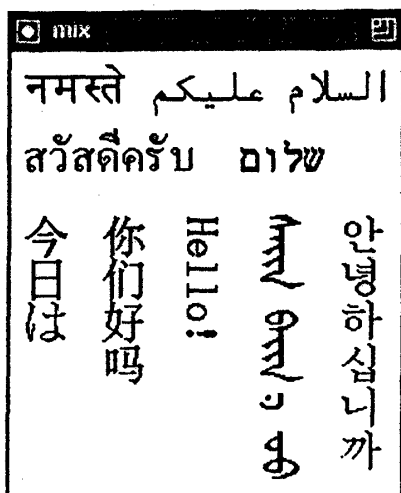 mix
नमस्ते السلام عليكم
สวัสดีครับ שלום
今日は
你们好吗
Hello!
안녕하십니까